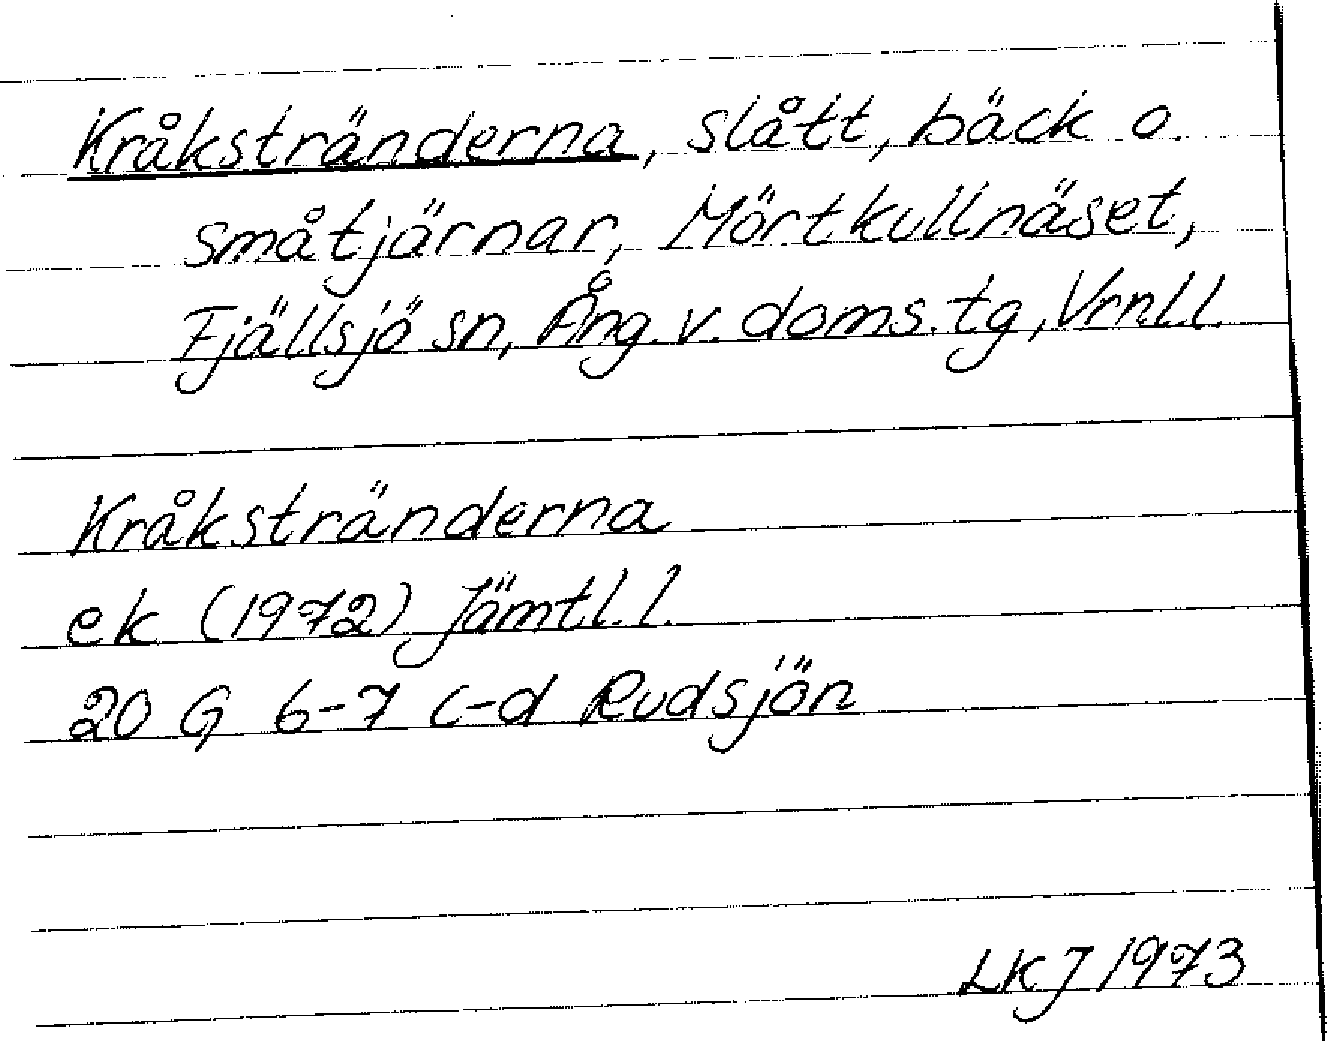 Kråkstränderna, slått, bäck o.
småtjärnar, Mörtkullnäset,
Fjällsjö sn, Ång. v. doms. tg, Vrnl.l.
Kråkstränderna
ek (1972) Jämtl.l.
20 G 6-7 c-d Rudsjön
LKJ 1973